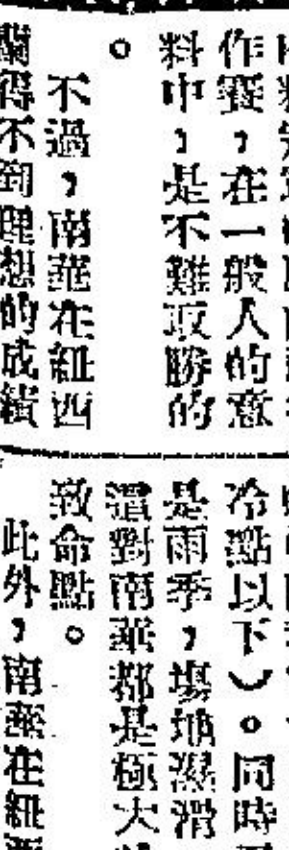 作賽,在一般人的意
料中,是不難取勝的
。
不過,南華在紐西
蘭得不到理想的成績
冷點以下)。同時
是雨季,場地濕滑
這對南華都是極大
致命點。
此外,南華在紐西